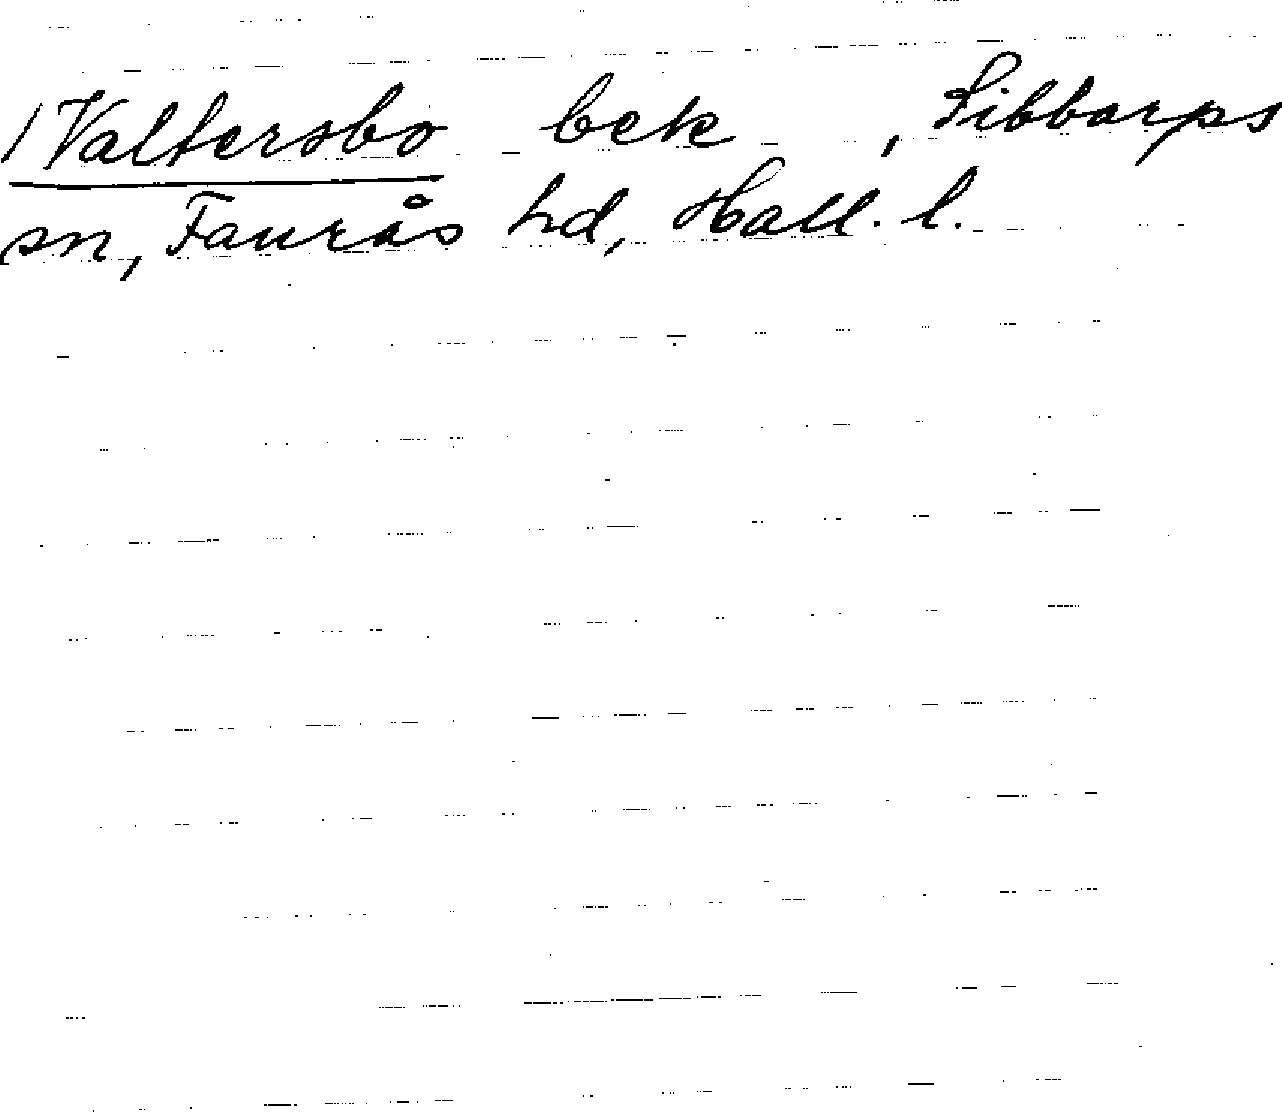 /Valtersbo bek , Sibbarps
sn, Faurås hd, Hall. l.